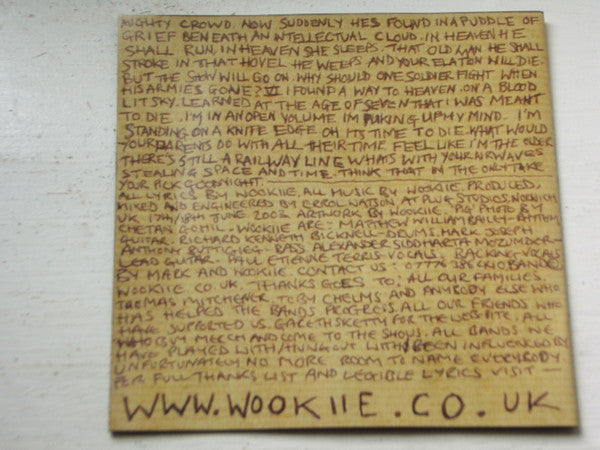 MIGHTY CROWD. NOW SUDDENLY HES FOUND IN A PUDDLE OF
GRIEF BENEATH AN INTELLECTUAL CLOUD. IN HEAVEN HE
SHALL RUN, IN HEAVEN SHE SLEEPS. THAT OLD MAN HE SHALL
STROKE IN THAT HOVEL HE WEEPS AND YOUR ELATION WILL DIE.
BUT THE SHOW WILL GO ON. WHY SHOULD ONE SOLDIER FIGHT WHEN
HIS ARMIES GONE? VI I FOUND A WAY TO HEAVEN. ON A BLOOD
LIT SKY. LEARNED AT THE AGE OF SEVEN THAT I WAS MEANT
TO DIE. I'M IN AN OPEN VOLUME IM PUKING UP MY MIND. I'M
STANDING ON A KNIFE EDGE. OH ITS TIME TO DIE. WHAT WOULD
YOUR PARENTS DO WITH ALL THEIR TIME FEEL LIKE I'M THE OLDER
THERE'S STILL A RAILWAY LINE WHATS WITH YOUR AIRWAVES
STEALING SPACE AND TIME. THINK THAT IN THE ONLY TAKE
YOUR PICK GOODNIGHT.
ALL LYRICS BY WOOKIIE. ALL MUSIC BY WOOKIIE. PRODUCED,
MIXED AND ENGINEERED BY ERROL WATSON AT PLUG STUDIOS, NORWICH
UK 17th/18th JUNE 2003. ARTWORK BY WOOKIIE. PIG PHOTO BY
CHETAN GOHIL. WOOKIIE ARE: MATTHEW WILLIAM BAILEY - RHYTHM
GUITAR. RICHARD KENNETH BICKNELL - DRUMS. MARK JOSEPH
ANTHONY BUTTIGIEG - BASS ALEXANDER SIDDHARTA MOZUMDER -
LEAD GUITAR. PAUL ETIENNE TERRIS - VOCALS. BACKING VOCALS
BY MARK AND WOOKIIE. CONTACT US: BAND@
WOOKIIE.CO.UK. THANKS GOES TO: ALL OUR FAMILIES.
THOMAS MITCHENER, TOBY CHELMS AND ANYBODY ELSE WHO
HAS HELPED THE BANDS PROGRESS. ALL OUR FRIENDS WHO
HAVE SUPPORTED US. GARETH SKETTY FOR THE WEBSITE. ALL
WHO BUY MERCH AND COME TO THE SHOWS. ALL BANDS WE
HAVE PLAYED WITH/HUNG OUT WITH/BEEN INFLUENCED BY
UNFORTUNATELY NO MORE ROOM TO NAME EVERYBODY
FOR FULL THANKS LIST AND LEGIBLE LYRICS VISIT —
WWW.WOOKIIE.CO.UK